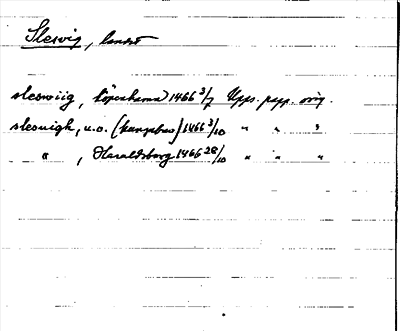 Slesvig, landet
sleswiig, Köpenhamn 1466 3/7 Upps. papp. orig.
slesuigh, u.o. (kungsbrev) 1466 3/10 " " "
" , Haraldsborg 1466 28/10 " " "